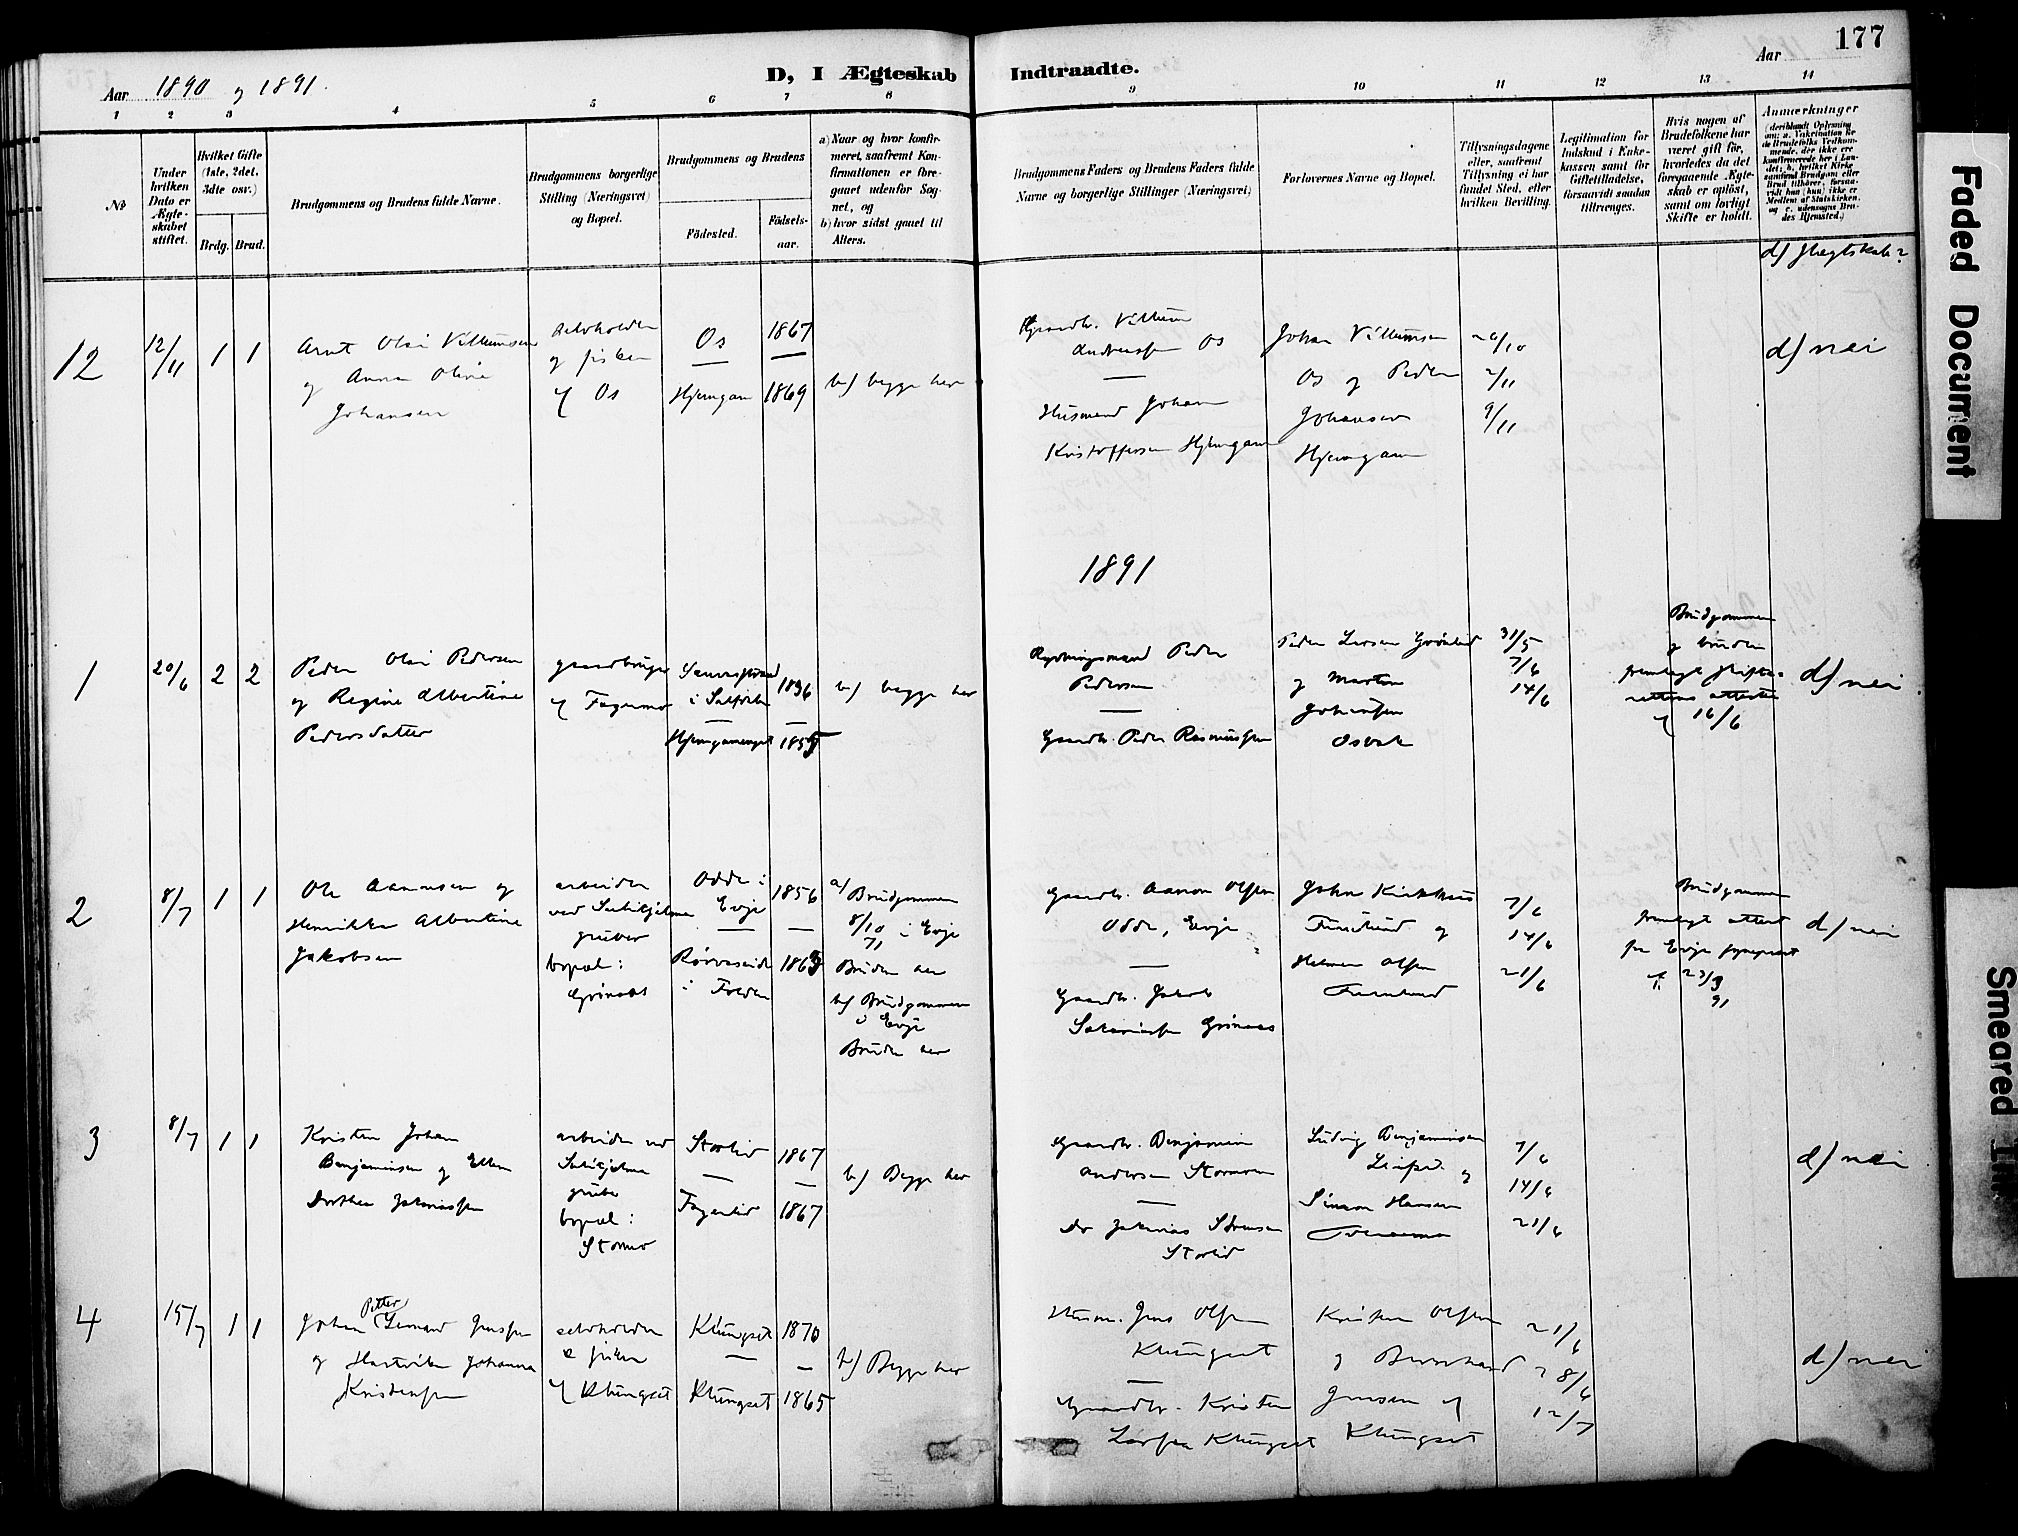 177
D, I Ægteskab Indtraadte.
Aar 1890 og 1891.
Aar
1 2 3 4 5 6 7 8 9 10 11 12 13 14
№
Under hvilken Dato er Ægteskabet stiftet.
Hvilket Gifte (1ste, 2det, 3dte osv.)
Brdg. Brud.
Brudgommens og Brudens fulde Navne.
Brudgommens borgerlige Stilling (Næringsvei) og Bopæl.
Brudgommens og Brudens
Födested.
Födselsaar.
a) Naar og hvor konfirmeret, saafremt Konfirmationen er foregaaet udenfor Sognet, og
b) hvor sidst gaaet til Alters.
Brudgommens Faders og Brudens Faders fulde Navne og borgerlige Stillinger (Næringsvei)
Forlovernes Navne og Bopæl.
Tillysningsdagene eller, saafremt Tillysning ei har fundet Sted, efter hvilken Bevilling.
Legitimation for Indskud i Enkekassen samt for Giftetilladelse, forsaavidt saadan tiltrænges.
Hvis nogen af Brudefolkene har været gift för, hvorledes da det foregaaende Ægteskab er oplöst, samt om lovligt Skifte er holdt.
Anmærkninger
d) Slægtskab?
12
12/11
1 1
Arnt Olai Villumsen
og Anna Olive
Johansen
selvholden
og fisker
af Os
Os
—
Hjemgam
1867
—
1869
b) begge her
Gaardbr. Villum
Andreassen Os
—
Husmand Johan
Kristoffersen Hjemgam
Johan Villumsen
Os og Peder
Johansen
Hjemgam
26/10
2/11
9/11
d) nei
1891
1
20/6
2 2
Peder Olai Pedersen
og Regine Albertine
Pedersdatter
gaardbruger
af Fagermo
1836
—
1855
b) begge her
Rydningsmand Peder
Pedersen
—
Gaardb. Peder Rasmussen
Peder Larsen Grönlid
og Morten
Johansen
Osbak
31/5
7/6
14/6
Brudgommen
og bruden
fremlagt skifterettens attester
af 16/6
d) nei
2
8/7
1 1
Ole Aanensen og
Henrikke Albertine
Jakobsen
arbeider
ved Sulitjelma
gruber
bopæl:
Grönaas
Odde i
Evje
—
Rörvaseide
i Folden
1856
—
1863
a) Brudgommen
8/10 71 i Evje
Bruden her
b) Brudgommen
i Evje
Bruden her
Gaardbr. Aanon Olsen
Odde, Evje
—
Gaardb. Jakob
Sakariassen Grönaas
John Kirkhus
Furulund og
Helmer Olsen
Furulund
7/6
14/6
21/6
Brudgommen
fremlagt attest
fra Evje sogneprest
af 23/3 91
d) nei
3
8/7
1 1
Kristen Johan
Benjaminsen og Ellen
Dorthea Zakariassen
arbeider ved
Sulitjelma
gruber
bopæl:
Stormo
Storlid
—
Fagerlid
1867
—
1867
b) Begge her
Gaardbr. Benjamin
Andersen Stormoen
—
do Zakarias Sörensen
Storlid
Ludvig Benjaminsen
og
Simon Hansen
7/6
14/6
21/6
d) nei
4
15/7
1 1
Petter
Johan Leonard Jenssen
og Hartvikke Johanna
Kristensen
selvholden
& fisker
af Klungset
Klungset
—
Klungset
1870
—
1865
b) Begge her
Husm. Jens Olsen
Klungset
—
Gaardbr. Kristen
Larsen Klungset
Kristen Olsen
og Bernhard
Jensen af
Klungset
21/6
28/6
12/7
d) nei
Faded Document
Smeared Ink